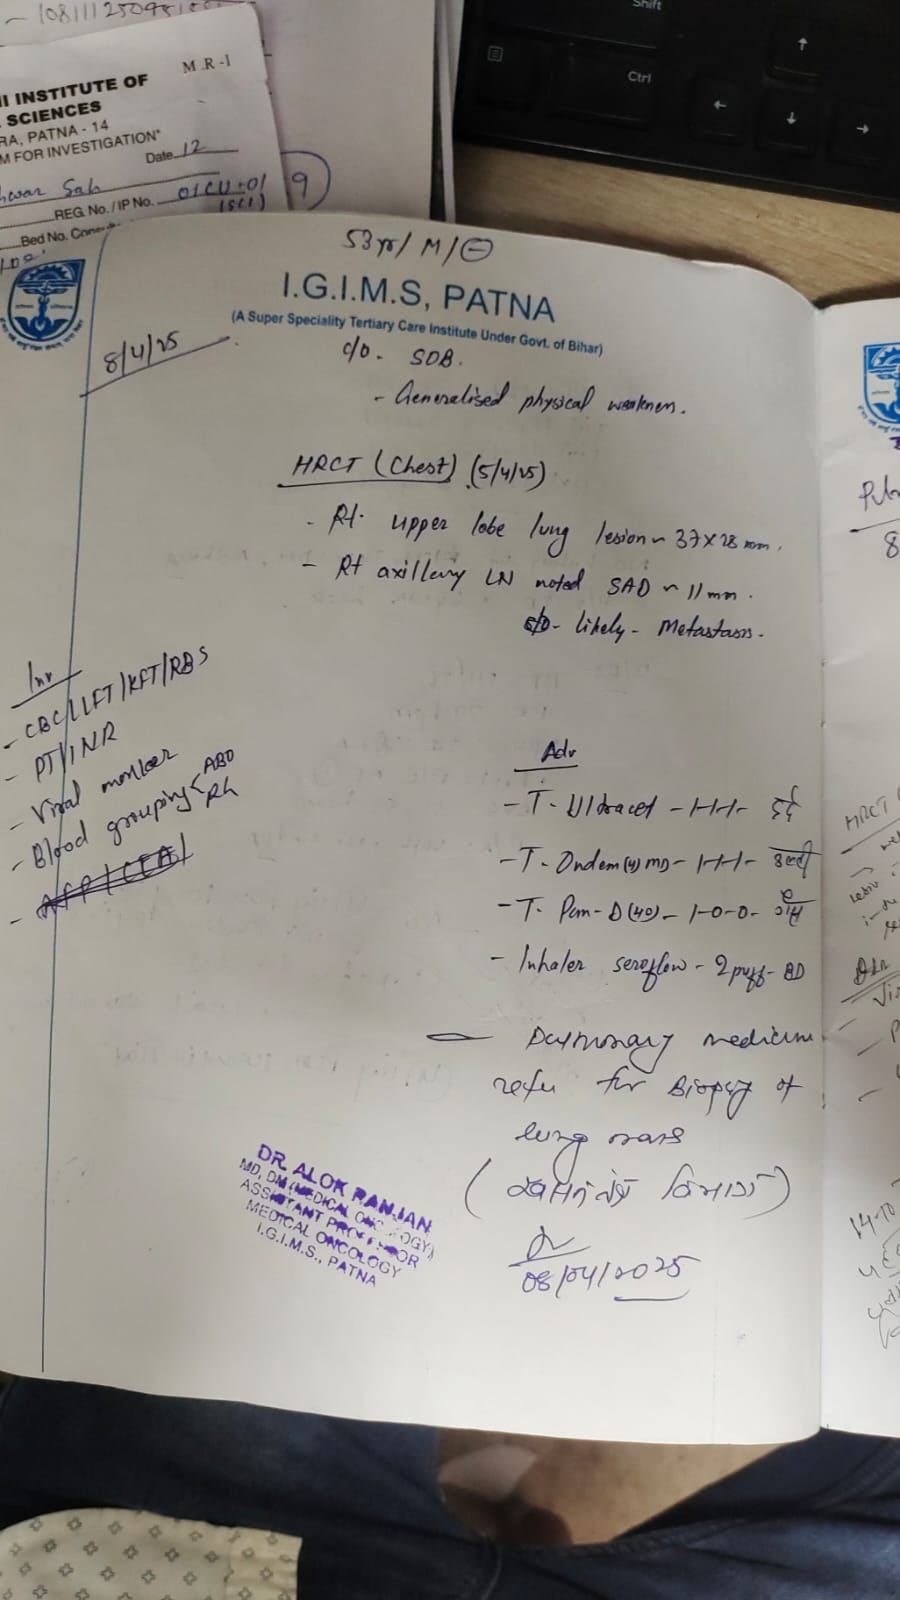 M.R-1
INSTITUTE OF
SCIENCES
RA, PATNA - 14
M FOR INVESTIGATION"
Date 12
Sah
REG. No./ IP No.
Bed No.
9
Shift
Ctrl
53 yr/ M/
I.G.I.M.S, PATNA
(A Super Speciality Tertiary Care Institute Under Govt. of Bihar)
8/4/25
c/o. SOB.
- Generalised physical weakness.
HRCT (Chest) (5/4/25)
- Rt. upper lobe lung lesion ~ 37x28 mm.
- Rt axillary LN noted SAD ~ 11 mm.
likely - Metastasis.
Inv
- CBC/LFT/KFT/RBS
- PT/INR
- Viral marker
- Blood grouping < ABO
Rh
- AFP/CEA/
Adv
- T. Ultracet - 1-1-1- दर्द
- T. Ondem (4) MD - 1-1-1- उल्टी
- T. Pan-D (40) - 1-0-0- गैस
- Inhaler seroflow - 2 puff - BD
Pulmonary medicine
refer for Biopsy of
lung mass
विभाग)
08/04/2025
DR. ALOK RANJAN
MD, DM (MEDICAL ONCOLOGY)
ASSISTANT PROFESSOR
MEDICAL ONCOLOGY
I.G.I.M.S., PATNA
8
HRCT